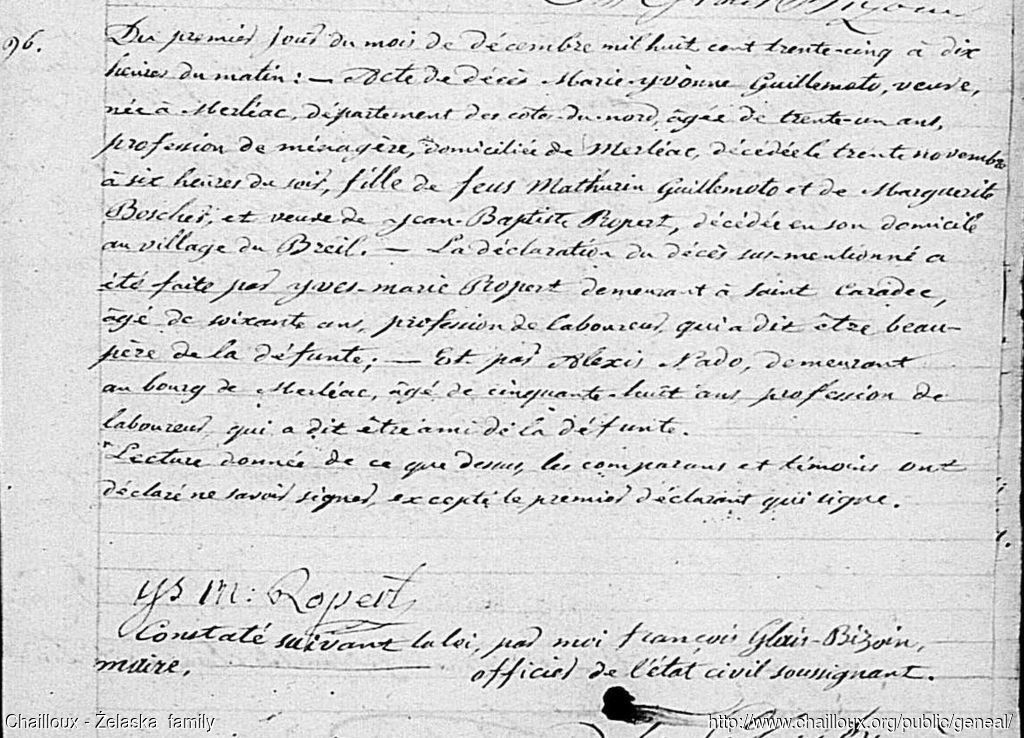 96.
Du premier jour du mois de décembre mil huit cent trente-cinq à dix
heures du matin : — Acte de décès Marie-Yvonne Guillemoto, veuve,
née à Merléac, département des côtes-du-nord, âgée de trente-un ans,
profession de ménagère, domiciliée de Merléac, décédée le trente novembre
à six heures du soir, fille de feus Mathurin Guillemoto et de Marguerite
Boscher, et veuve de Jean-Baptiste Ropert, décédée en son domicile
au village du Breil. — La déclaration du décès sus-mentionné a
été faite par Yves-marie Ropert demeurant à saint Caradec,
âgé de soixante ans, profession de laboureur, qui a dit être beau-
père de la défunte ; — Et par Alexis Nado, demeurant
au bourg de Merléac, âgé de cinquante-huit ans profession de
laboureur, qui a dit être ami de la défunte.
Lecture donnée de ce que dessus, les comparans et témoins ont
déclaré ne savoir signer, excepté le premier déclarant qui signe.
ys m: Ropert
Constaté suivant la loi, par moi françois Glais-Bizoin,
maire, officier de l'état civil soussignant.
Chailloux - Żelaska family
http://www.chailloux.org/public/geneal/